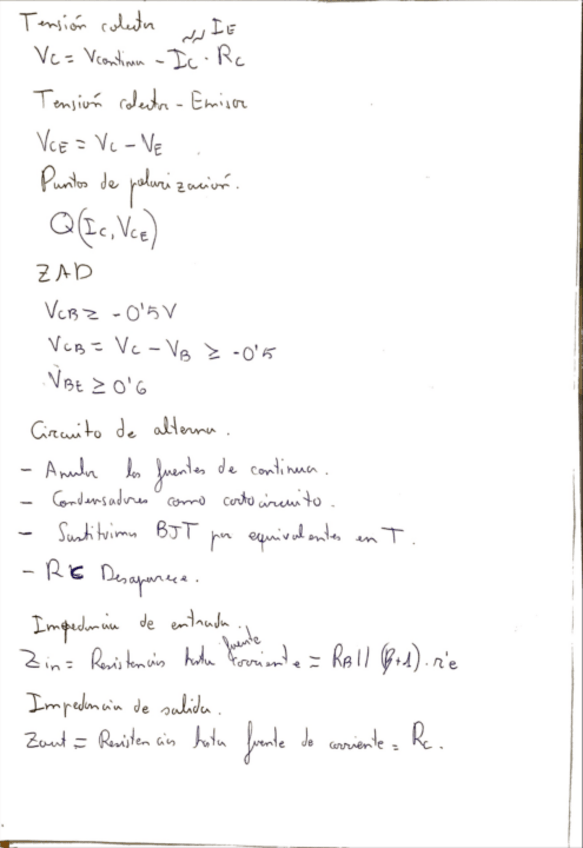 Tensión colector
≈ IE
VC = Vcontinua - IC · RC
Tensión colector - Emisor
VCE = VC - VE
Puntos de polarización.
Q(IC, VCE)
ZAD
VCB ≥ -0'5V
VCB = VC - VB ≥ -0'5
VBE ≥ 0'6
Circuito de alterna.
- Anular las fuentes de continua.
- Condensadores como cortocircuito.
- Sustituimos BJT por equivalentes en T.
- RE Desaparece.
Impedancia de entrada.
fuente
Zin = Resistencias hasta corriente = RB || (β+1) · r'e
Impedancia de salida.
Zout = Resistencias hasta fuente de corriente = RC.